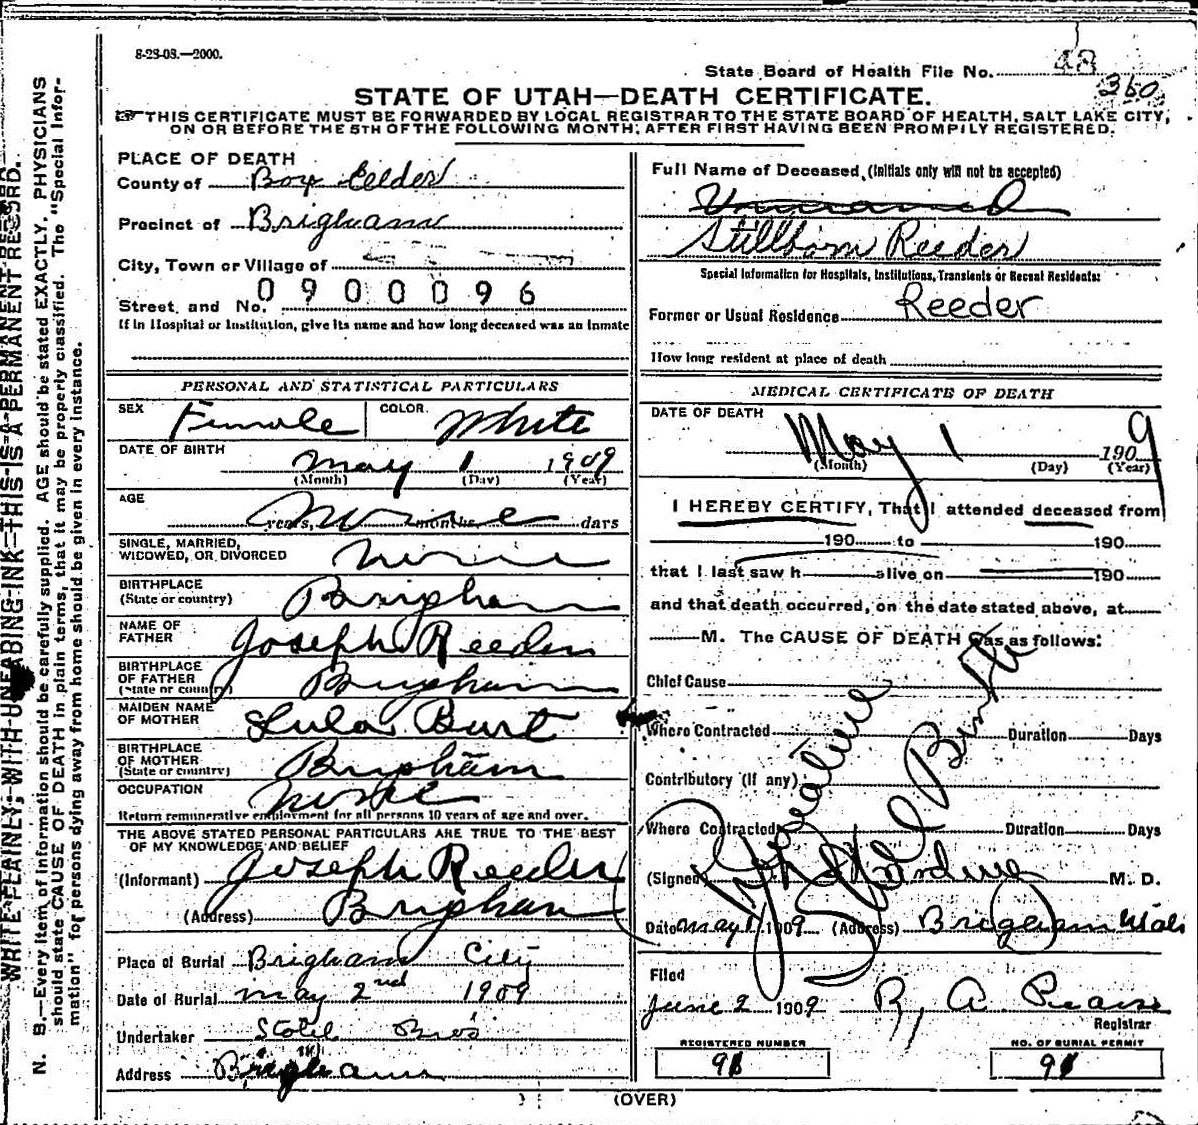 8-23-08.—2000.
State Board of Health File No.
360
STATE OF UTAH—DEATH CERTIFICATE.
☞ THIS CERTIFICATE MUST BE FORWARDED BY LOCAL REGISTRAR TO THE STATE BOARD OF HEALTH, SALT LAKE CITY,
ON OR BEFORE THE 5TH OF THE FOLLOWING MONTH, AFTER FIRST HAVING BEEN PROMPTLY REGISTERED.
PLACE OF DEATH
County of Box Elder
Precinct of Brigham
City, Town or Village of
Street, and No. 0900096
If in Hospital or Institution, give its name and how long deceased was an Inmate
PERSONAL AND STATISTICAL PARTICULARS
SEX Female COLOR White
DATE OF BIRTH
May 1 1909
(Month) (Day) (Year)
AGE
None years, months, days
SINGLE, MARRIED,
WIDOWED, OR DIVORCED None
BIRTHPLACE
(State or country) Brigham
NAME OF
FATHER Joseph Reeder
BIRTHPLACE
OF FATHER
(State or country) Brigham
MAIDEN NAME
OF MOTHER Lula Burt
BIRTHPLACE
OF MOTHER
(State or country) Brigham
OCCUPATION None
Return remunerative employment for all persons 10 years of age and over.
THE ABOVE STATED PERSONAL PARTICULARS ARE TRUE TO THE BEST
OF MY KNOWLEDGE AND BELIEF
(Informant) Joseph Reeder
(Address) Brigham
Place of Burial Brigham City
Date of Burial May 2nd 1909
Undertaker Bros
Address Brigham
Full Name of Deceased, (Initials only will not be accepted)
Unnamed
Stillborn Reeder
Special Information for Hospitals, Institutions, Transients or Recent Residents:
Former or Usual Residence Reeder
How long resident at place of death
MEDICAL CERTIFICATE OF DEATH
DATE OF DEATH
May 1 1909
(Month) (Day) (Year)
I HEREBY CERTIFY, That I attended deceased from
190 to 190
that I last saw h alive on 190
and that death occurred, on the date stated above, at
M. The CAUSE OF DEATH was as follows:
Chief Cause
Where Contracted Duration Days
Contributory (if any)
Where Contracted Duration Days
Premature
Still Birth
(Signed) M. D.
Date May 1 1909 (Address) Brigham Utah
Filed
June 2 1909 R. A. Pearse
Registrar
REGISTERED NUMBER
NO. OF BURIAL PERMIT
(OVER)
N. B.—Every item of information should be carefully supplied. AGE should be stated EXACTLY. PHYSICIANS
should state CAUSE OF DEATH in plain terms, that it may be properly classified. The "Special Infor-
mation" for persons dying away from home should be given in every instance.
WRITE PLAINLY, WITH UNFADING INK—THIS IS A PERMANENT RECORD.